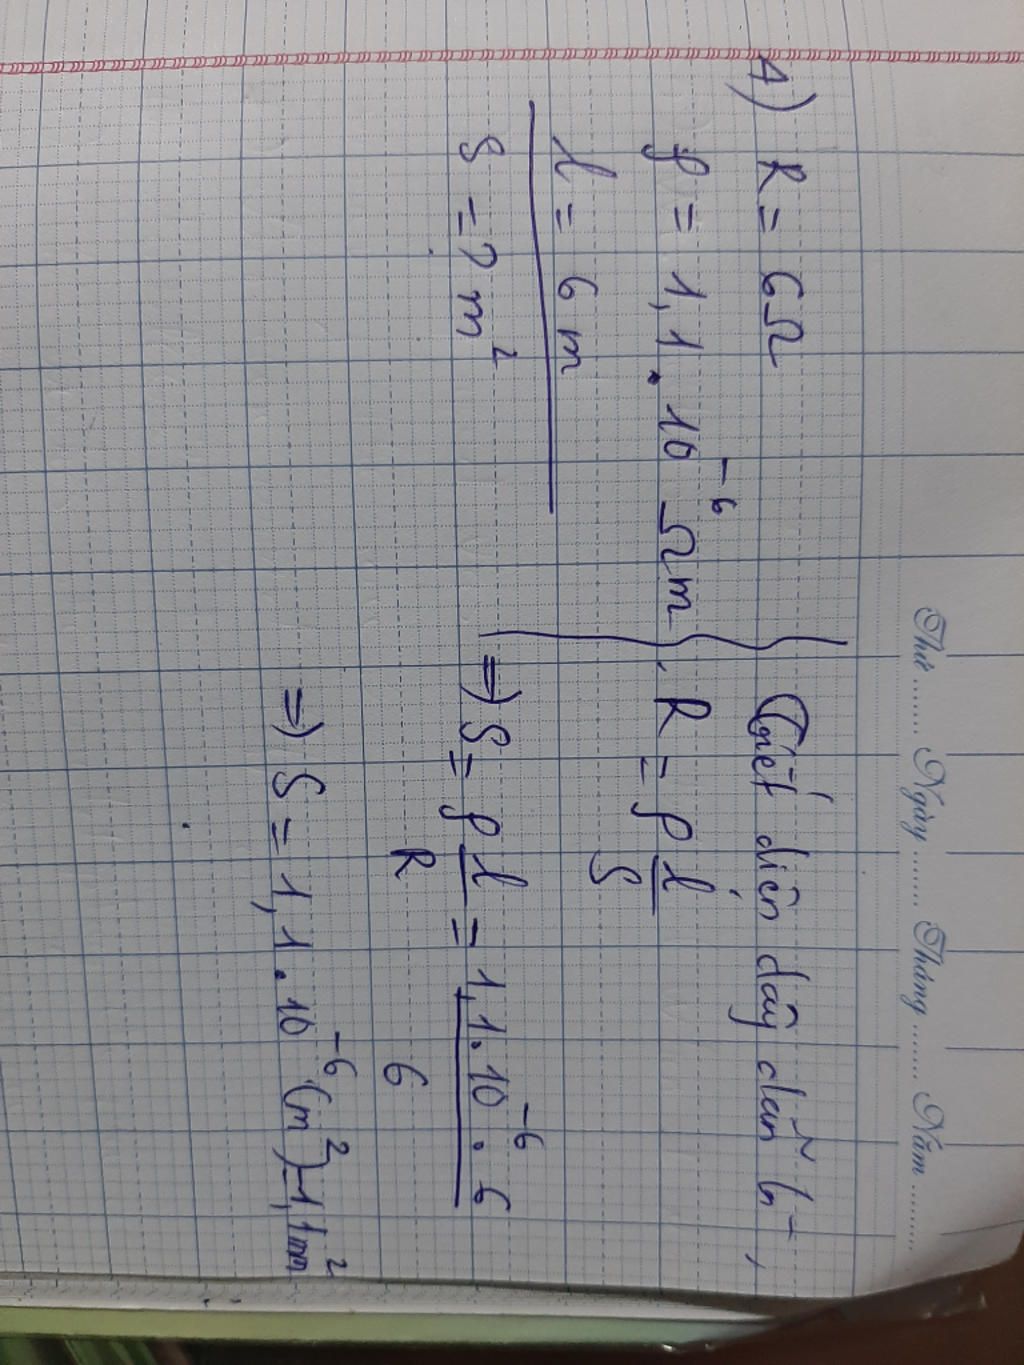 Thứ ........ Ngày ........ Tháng ........ Năm ..........
4) R = 6Ω
ρ = 1,1.10⁻⁶ Ωm
l = 6 m
S = ? m²
Tiết diện dây dẫn là
R = ρ l/S
=> S = ρ l/R = 1,1.10⁻⁶.6/6
=> S = 1,1.10⁻⁶ (m²) = 1,1mm²